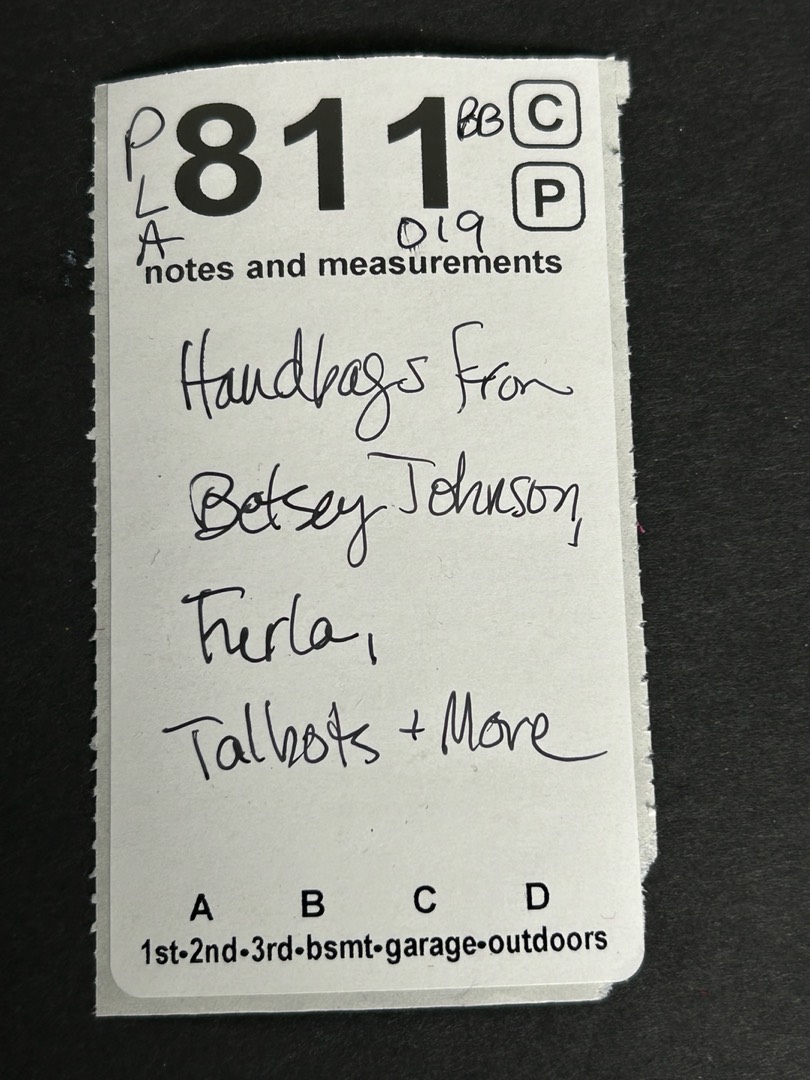 PLA 811 BB C
P
019
notes and measurements
Handbags from
Betsey Johnson,
Furla,
Talbots + More
A B C D
1st•2nd•3rd•bsmt•garage•outdoors